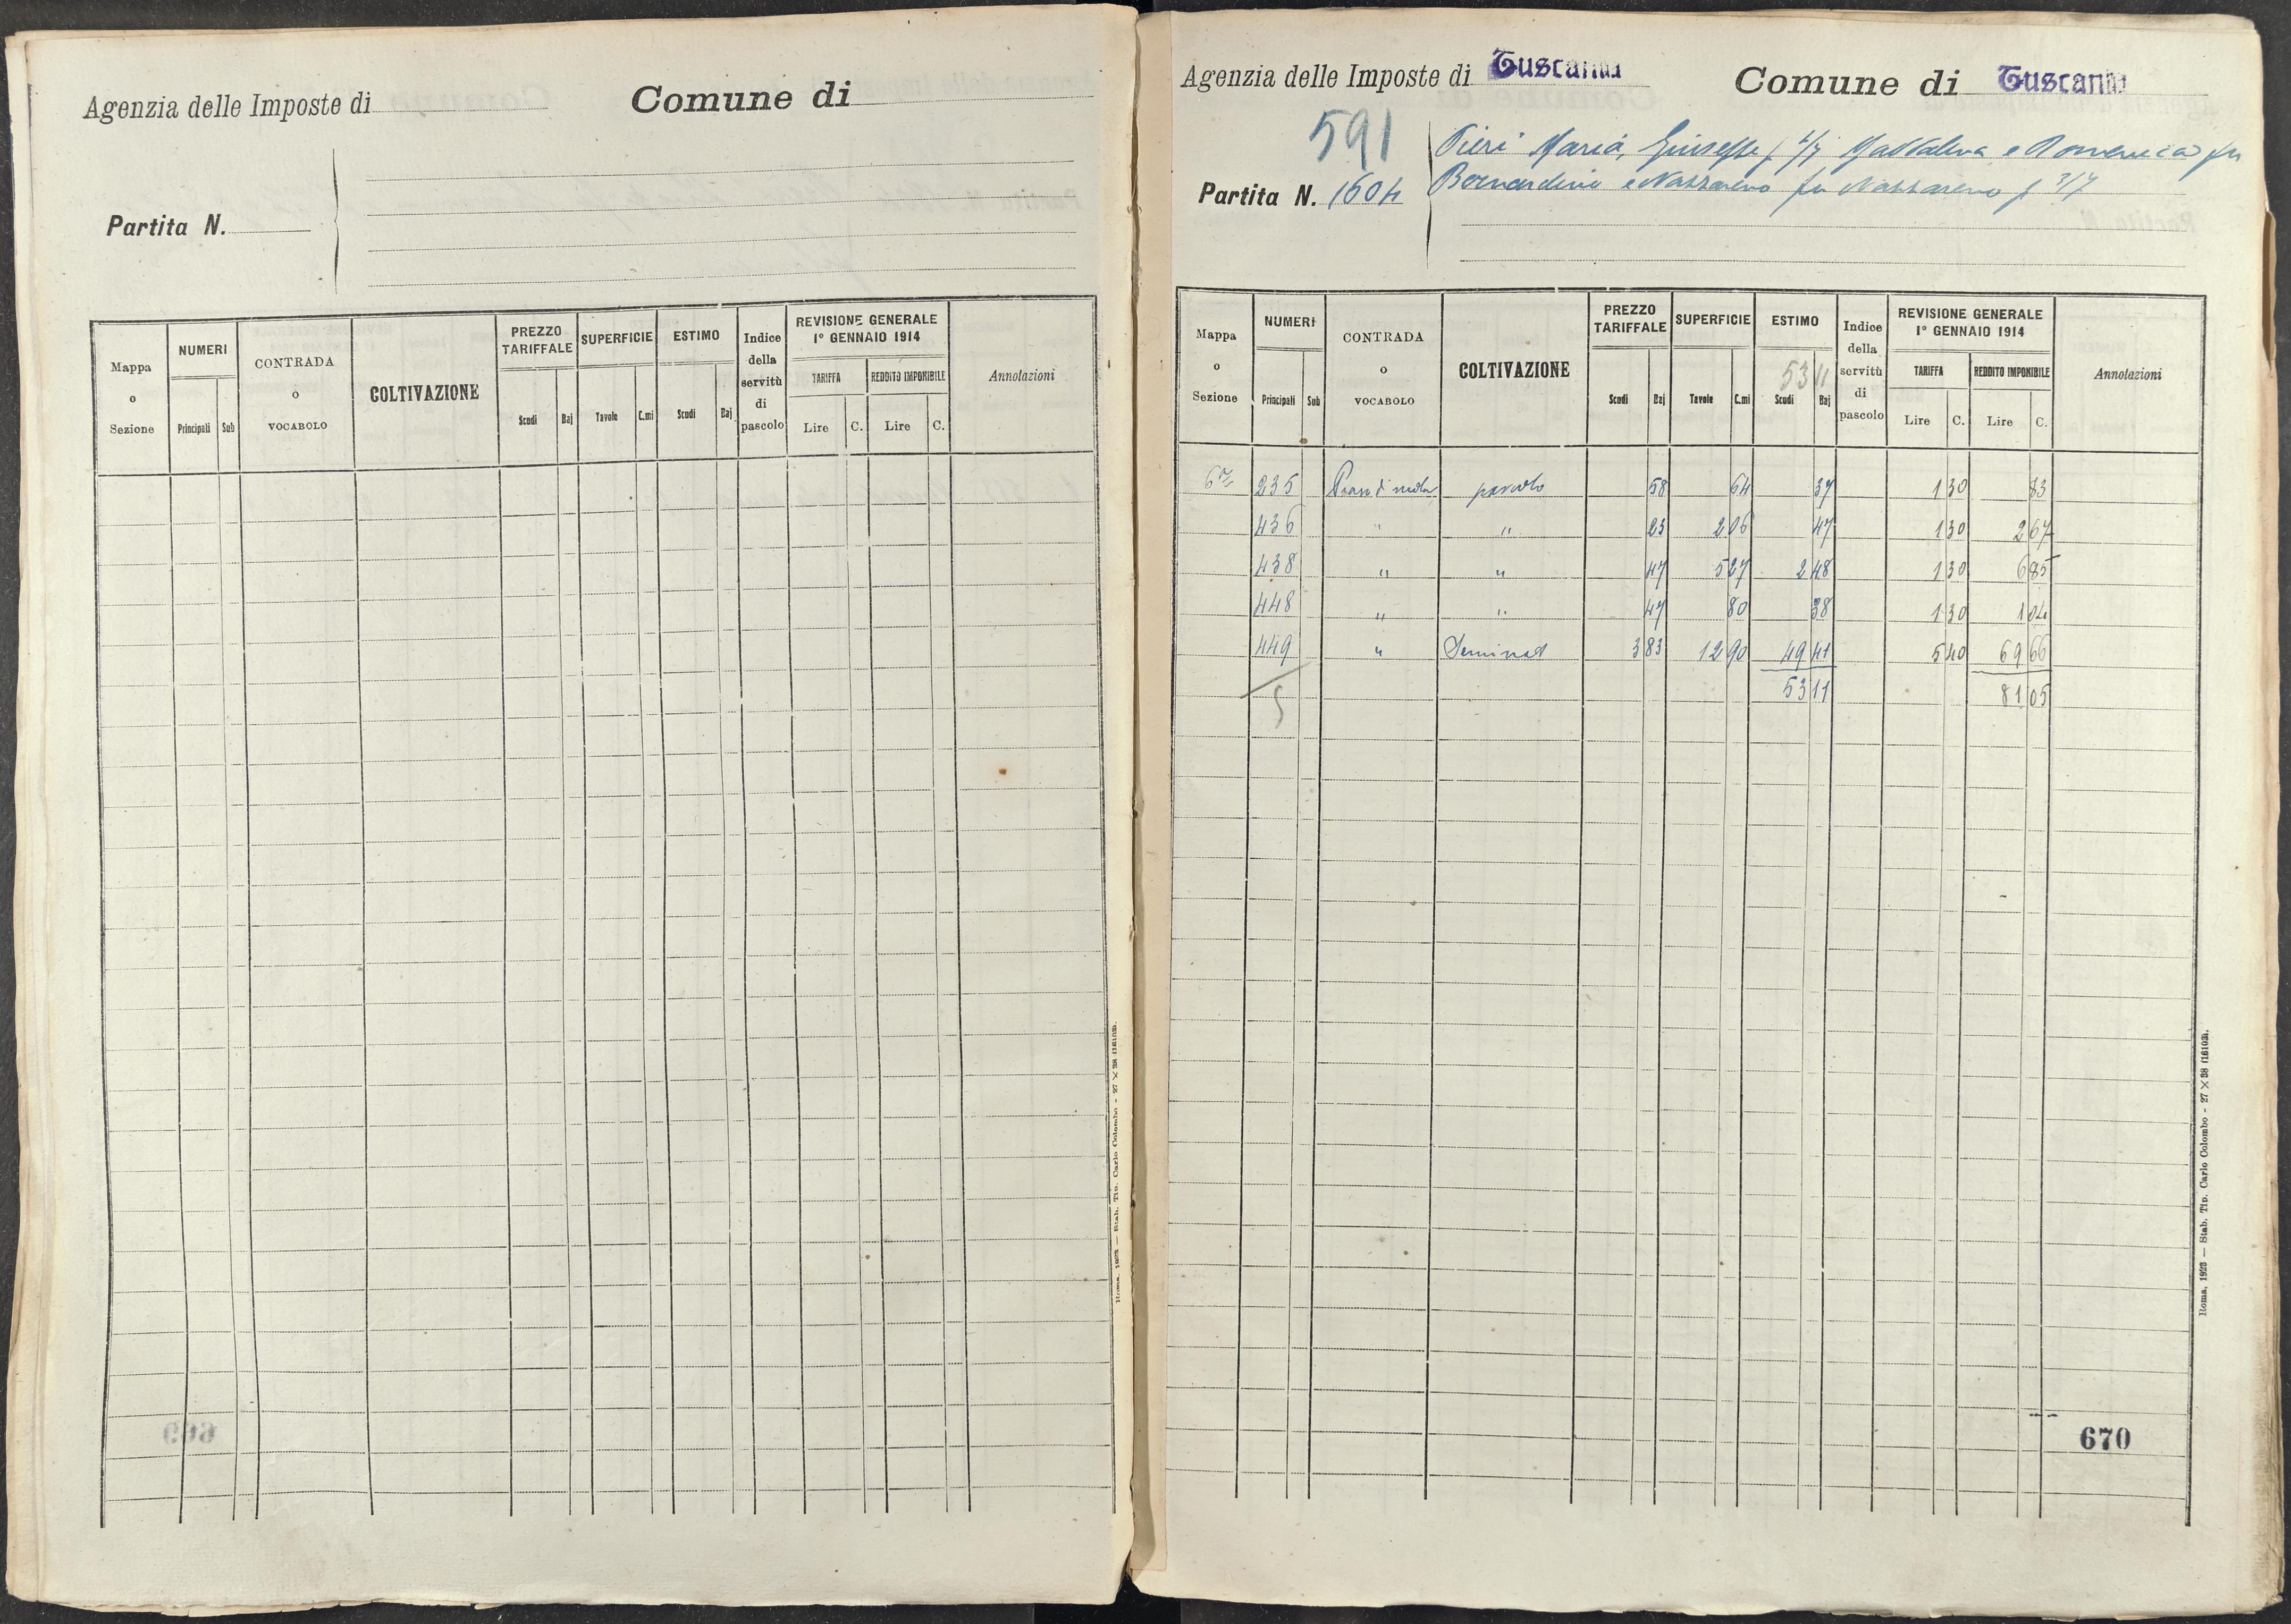 Agenzia delle Imposte di Comune di
Partita N.
Mappa o Sezione NUMERI Principali Sub CONTRADA o VOCABOLO COLTIVAZIONE PREZZO TARIFFALE Scudi Baj SUPERFICIE Tavole C.mi ESTIMO Scudi Baj Indice della servitù di pascolo REVISIONE GENERALE 1° GENNAIO 1914 TARIFFA Lire C. REDDITO IMPONIBILE Lire C. Annotazioni
Roma, 1923 — Stab. Tip. Carlo Colombo - 27 × 38 (16103).
669
Agenzia delle Imposte di Tuscania Comune di Tuscania
591
Pieri Maria, Giuseppe p. 4/7 Maddalena e Domenica fu
Partita N. 1604 Bernardino e Nazzareno fu Nazzareno p 3/7
Mappa o Sezione NUMERI Principali Sub CONTRADA o VOCABOLO COLTIVAZIONE PREZZO TARIFFALE Scudi Baj SUPERFICIE Tavole C.mi ESTIMO Scudi Baj Indice della servitù di pascolo REVISIONE GENERALE 1° GENNAIO 1914 TARIFFA Lire C. REDDITO IMPONIBILE Lire C. Annotazioni
53 11
6a 235 Pian di mola pascolo 58 64 37 1 30 83
436 " " 23 2 06 47 1 30 2 67
438 " " 47 5 27 2 48 1 30 6 85
448 " " 47 80 38 1 30 1 04
449 " Seminat 3 83 12 90 49 41 5 40 69 66
5 53 11 81 05
Roma, 1923 — Stab. Tip. Carlo Colombo - 27 × 38 (16103).
670